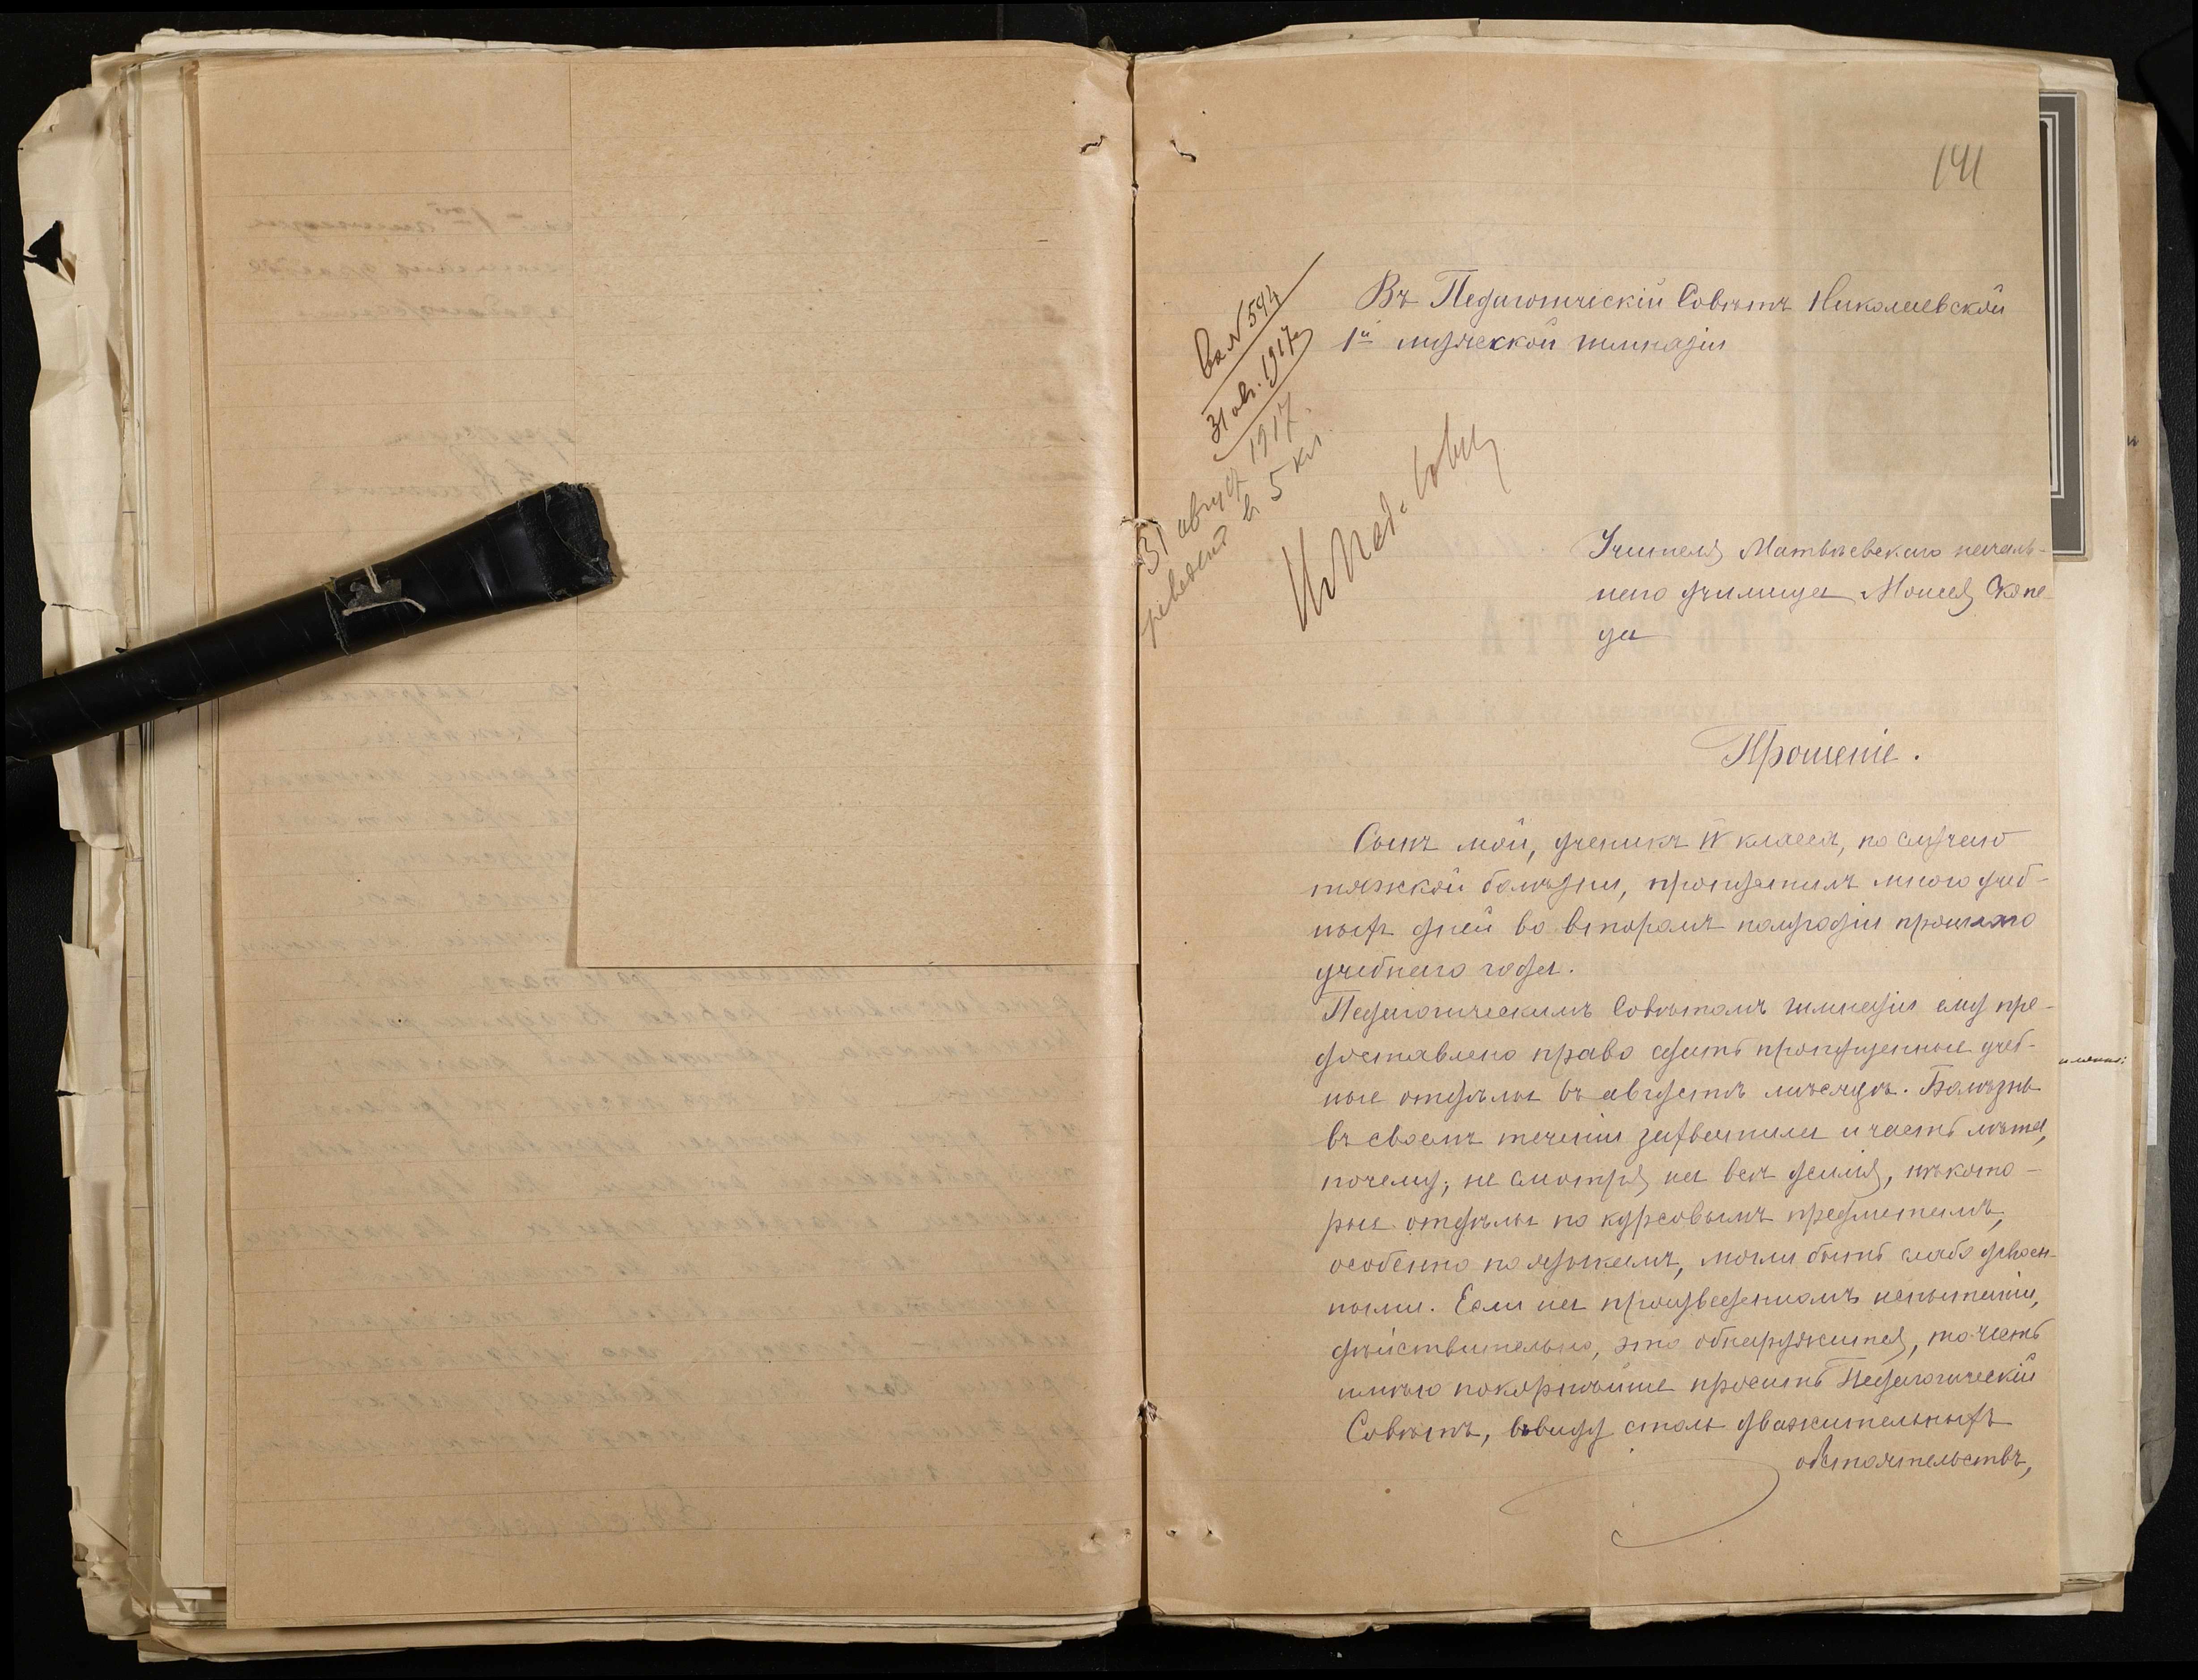 141
Вх N 594
31 авг. 1917г
31 август 1917.
в 5 кл
Въ Педагогическій Совѣтъ Николаевской
1й мужской гимназіи
Учителя Матвѣевскаго началь-
наго училища Моисея Скопе
ца
Прошеніе.
Сынъ мой, ученикъ IV класса, по случаю
тяжкой болѣзни, пропустилъ много учеб-
ныхъ дней во второмъ полугодіи прошлаго
учебнаго года.
Педагогическимъ Совѣтомъ гимназіи ему пре-
доставлено право сдать пропущенные учеб-
ные отдѣлы въ августѣ мѣсяцѣ. Болѣзнь
въ своемъ теченіи захватила и часть лѣта,
почему, не смотря на всѣ усилія, нѣкото-
рые отдѣлы по курсовымъ предметамъ,
особенно по языкамъ, могли быть слабо усвоен-
ными. Если на произведенномъ испытаніи,
дѣйствительно, это обнаружится, то честь
имѣю покорнѣйше просить Педагогическій
Совѣтъ, ввиду столь уважительныхъ
обстоятельствъ,